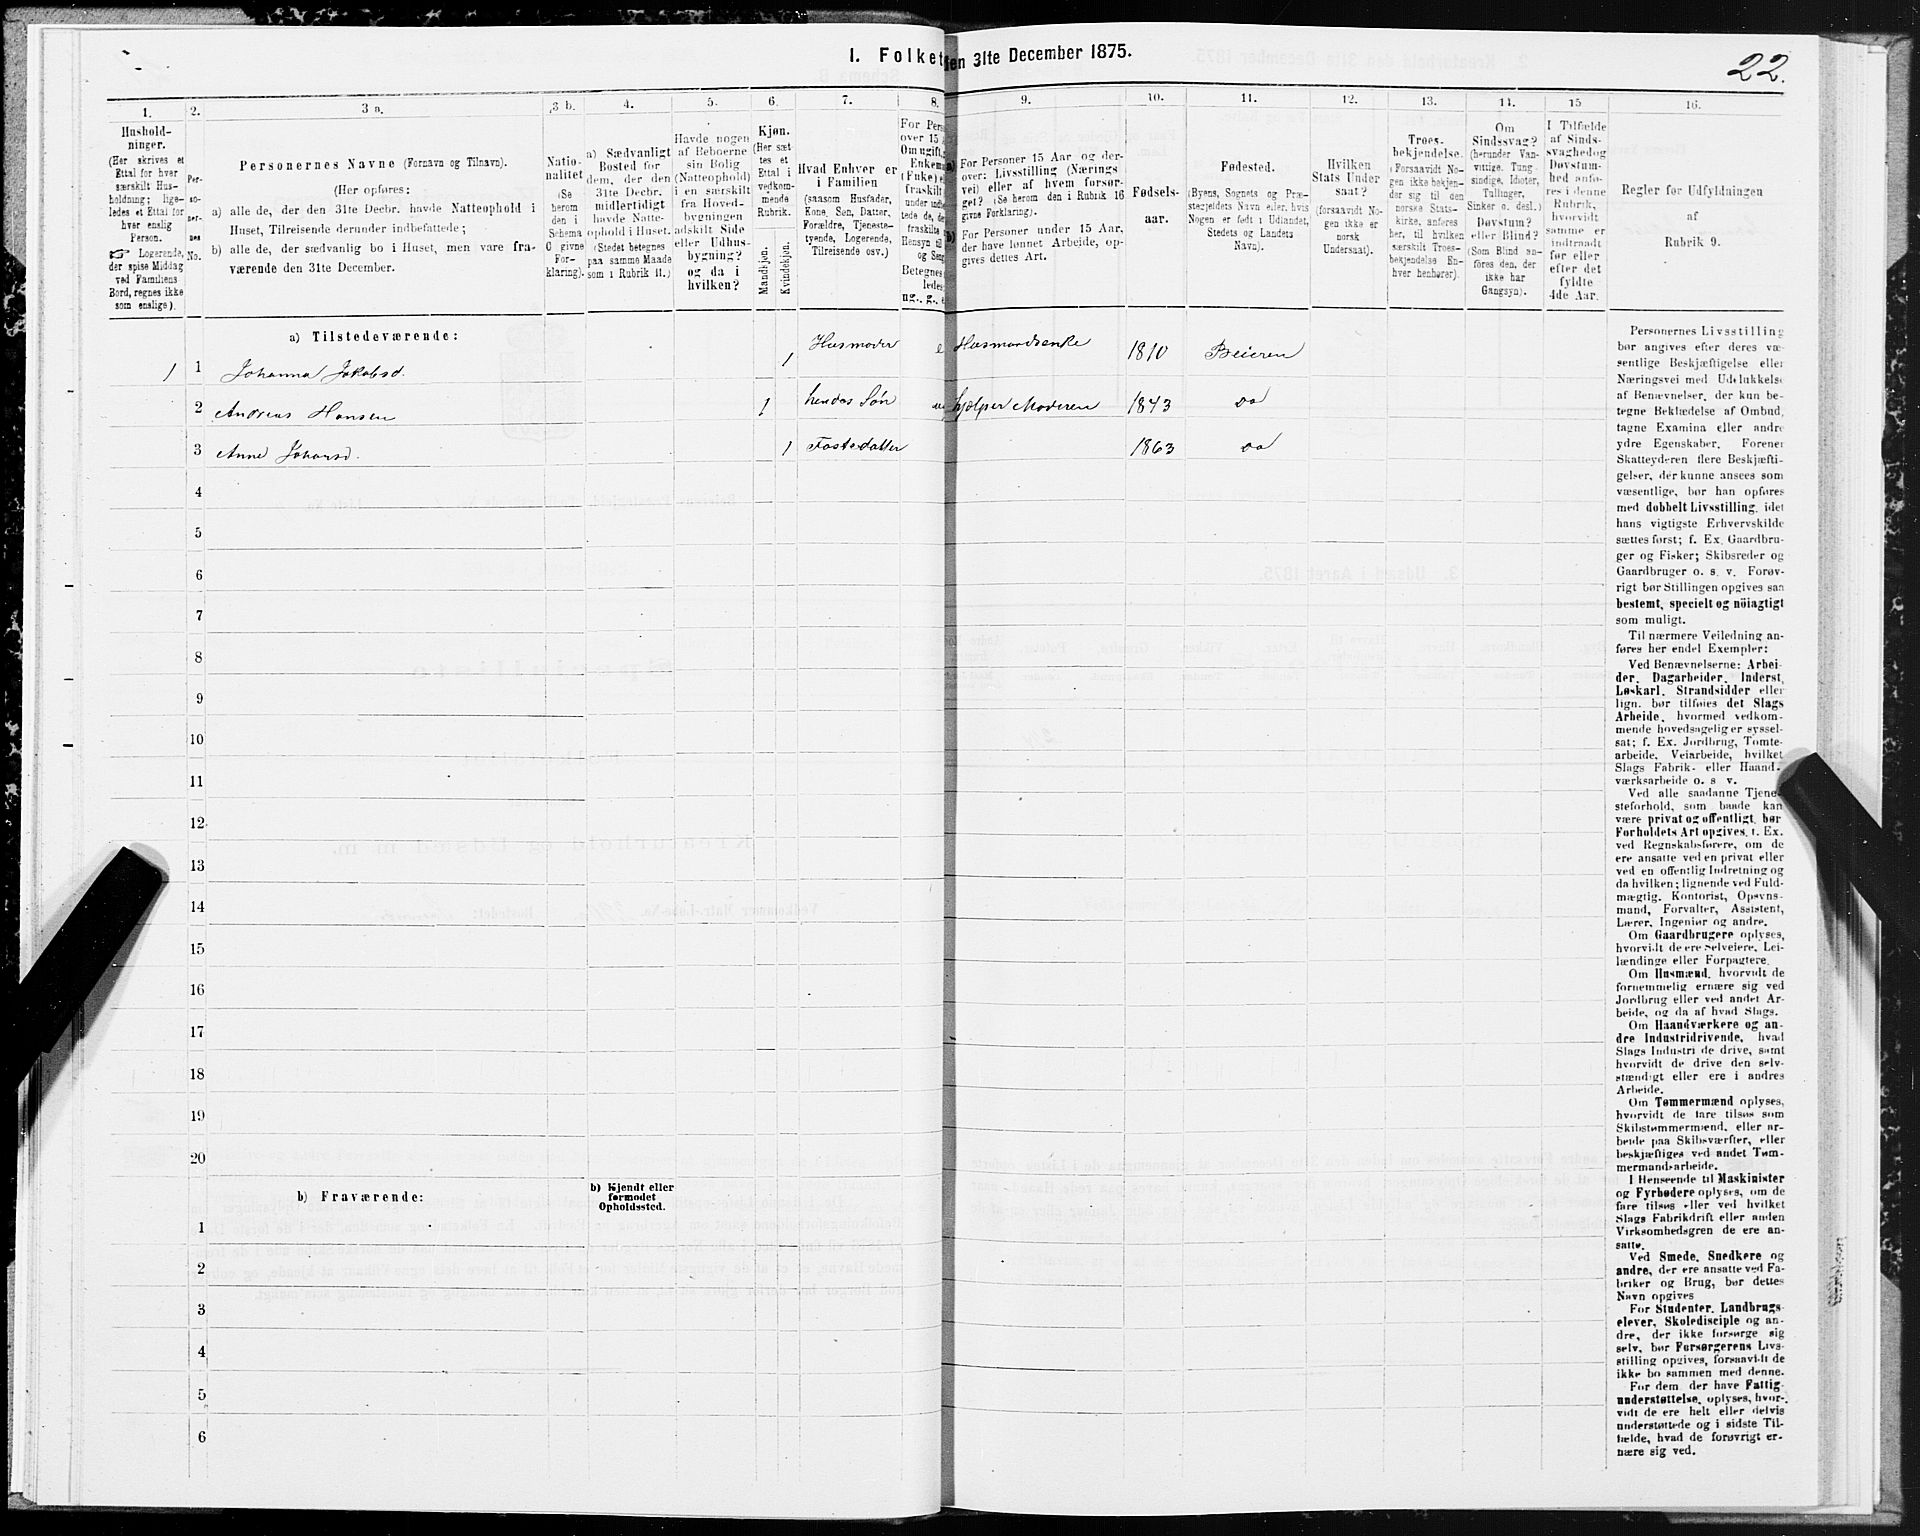 1. Folket
den 31te December 1875.
22.
1.
Hushold-
ninger.
(Her skrives et
Ettal for hver
særskilt Hus-
holdning; lige-
ledes et Ettal for
hver enslig
Person.
Logerende,
der spise Middag
ved Familiens
Bord, regnes ikke
som enslige).
2.
Per-
so-
ner-
nes
No.
3 a.
Personernes Navne (Fornavn og Tilnavn).
(Her opføres:
a) alle de, der den 31te Decbr. havde Natteophold i
Huset, Tilreisende derunder indbefattede;
b) alle de, der sædvanlig bo i Huset, men vare fra-
værende den 31te December.
3 b.
Natio-
nalitet
(Se
herom
den i
Schema
O givne
For-
klaring).
4.
a) Sædvanligt
Bosted for
dem, der den
31te Decbr.
midlertidigt
havde Natte-
ophold i Huset.
(Stedet betegnes
paa samme Maade
som i Rubrik 11.)
5.
Havde nogen
af Beboerne
sin Bolig
(Natteophold)
i en særskilt
fra Hoved-
bygningen
adskilt Side
eller Udhus-
bygning?
og da i
hvilken?
6.
Kjøn.
(Her sæt-
tes et
Ettal i
vedkom-
mende
Rubrik.
Mandkjøn.
Kvindekjøn.
7.
Hvad Enhver er
i Familien
(saasom Husfader,
Kone, Søn, Datter,
Forældre, Tjeneste-
tyende, Logerende,
Tilreisende osv.)
8.
For Pers
over 15
Om ugift,
Enkem
(Fuke)
fraskilt
under indt
tede de, de
fraskilte
Hensyn til
og Seng
Betegnes
ledes
ug., g.,
9.
a) For Personer 15 Aar og der-
over: Livsstilling (Nærings
vei) eller af hvem forsør-
get? (Se herom den i Rubrik 16
givne Forklaring).
b) For Personer under 15 Aar,
der have lønnet Arbeide, op-
gives dettes Art.
10.
Fødsels-
aar.
11.
Fødested.
(Byens, Sognets og Præ-
stegjeldets Navn eller, hvis
Nogen er født i Udlandet,
Stedets og Landets
Navn).
12.
Hvilken
Stats Under
saat?
(forsaavidt No-
gen ikke er
norsk
Undersaat).
13.
Troes-
bekjendelse.
(Forsaavidt No-
gen ikke bekjen-
der sig til den
norske Stats-
kirke, anføres
her, til hvilken
særskilt Troes-
bekjendelse En-
hver henhører).
14.
Om
Sindssvag?
(herunder Van-
vittige, Tung-
sindige, Idioter,
Tullinger,
Sinker o. desl.)
Døvstum?
eller Blind?
(Som Blind an-
føres den, der
ikke har
Gangsyn).
15
I Tilfælde
af Sinds-
svaghed og
Døvstum-
hed anfø-
res i denne
Rubrik,
hvorvidt
samme er
indtraadt
før eller
efter det
fyldte
4de Aar.
16.
Regler før Udfyldningen
af
Rubrik 9.
a) Tilstedeværende:
1 1 Johanna Jakobsd. 1 Husmoder e Husmandsenke 1810 Beieren
2 Andreas Hansen 1 hendes Søn hjælper Moderen 1843 do
3 Anne Johansd. 1 Fosterdatter 1863 do
4
5
6
7
8
9
10
11
12
13
14
15
16
17
18
19
20
b) Fraværende:
b) Kjendt eller
formodet
Opholdssted.
1
2
3
4
5
6
Personernes Livsstilling
bør angives efter deres væ-
sentlige Beskjæftigelse eller
Næringsvei med Udelukkelse
af Benævnelser, der kun be-
tegne Beklædelse af Ombud,
tagne Examina eller andre
ydre Egenskaber. Forener
Skatteyderen flere Beskjæfti-
gelser, der kunne ansees som
væsentlige, bør han opføres
med dobbelt Livsstilling, idet
hans vigtigste Erhvervskilde
sættes først; f. Ex. Gaardbru-
ger og Fisker; Skibsreder og
Gaardbruger o. s. v. Forøv-
rigt bør Stillingen opgives saa
bestemt, specielt og nöiagtigt
som muligt.
Til nærmere Veiledning an-
føres her endel Exempler:
Ved Benævnelserne: Arbei-
der, Dagarbeider, Inderst,
Løskarl, Strandsidder eller
lign. bør tilføies det Slags
Arbeide, hvormed vedkom-
mende hovedsagelig er syssel-
sat; f. Ex. Jordbrug, Tomte-
arbeide, Veiarbeide, hvilket
Slags Fabrik- eller Haand-
værksarbeide o. s v.
Ved alle saadanne Tjene-
steforhold, som baade kan
være privat og offentligt, bør
Forholdets Art opgives, t. Ex.
ved Regnskabsførere, om de
ere ansatte ved en privat eller
ved en offentlig Indretning og
da hvilken; lignende ved Fuld-
mægtig, Kontorist, Opsyns-
mand, Forvalter, Assistent,
Lærer, Ingeniør og andre.
Om Gaardbrugere oplyses,
hvorvidt de ere Selveiere, Lei-
lændinge eller Forpagtere.
Om Husmænd, hvorvidt de
fornemmelig ernære sig ved
Jordbrug eller ved andet Ar-
beide, og da af hvad Slags.
Om Haandværkere og an-
dre Industridrivende, hvad
Slags Industri de drive, samt
hvorvidt de drive den selv-
stændigt eller ere i andres
Arbeide.
Om Tømmermænd oplyses,
hvorvidt de fare tilsøs som
Skibstømmermænd, eller ar-
beide paa Skibsværfter, eller
beskjæftiges ved andet Tøm-
mermandsarbeide.
I Henseende til Maskinister
og Fyrbødere oplyses, om de
fare tilsøs eller ved hvilket
Slags Fabrikdrift eller anden
Virksomhedsgren de ere an-
satte.
Ved Smede, Snedkere og
andre, der ere ansatte ved Fa-
briker og Brug, bør dettes
Navn opgives
For Studenter, Landbrugs-
elever, Skoledisciple og an-
dre, der ikke forsørge sig
selv, bør Forsørgerens Livs-
stilling opgives, forsaavidt de
ikke bo sammen med denne.
For dem der have Fattig-
understøttelse, oplyses, hvor-
vidt de ere helt eller delvis
understøttede og i sidste Til-
fælde, hvad de forøvrigt er-
nære sig ved.